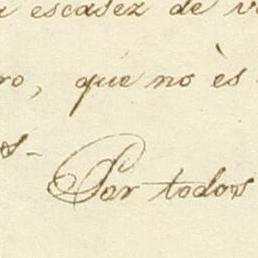 a escasez de v
ro, que no ès
s-
Por todos